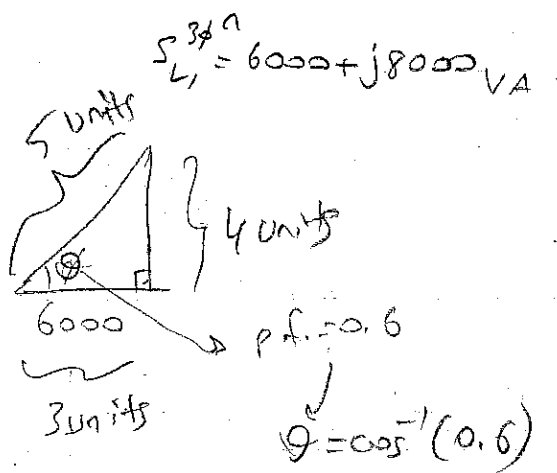 S_L₁^3ϕ = 6000 + j8000 VA
5 units
4 units
θ
6000
p.f. = 0.6
3 units
θ = cos⁻¹(0.6)